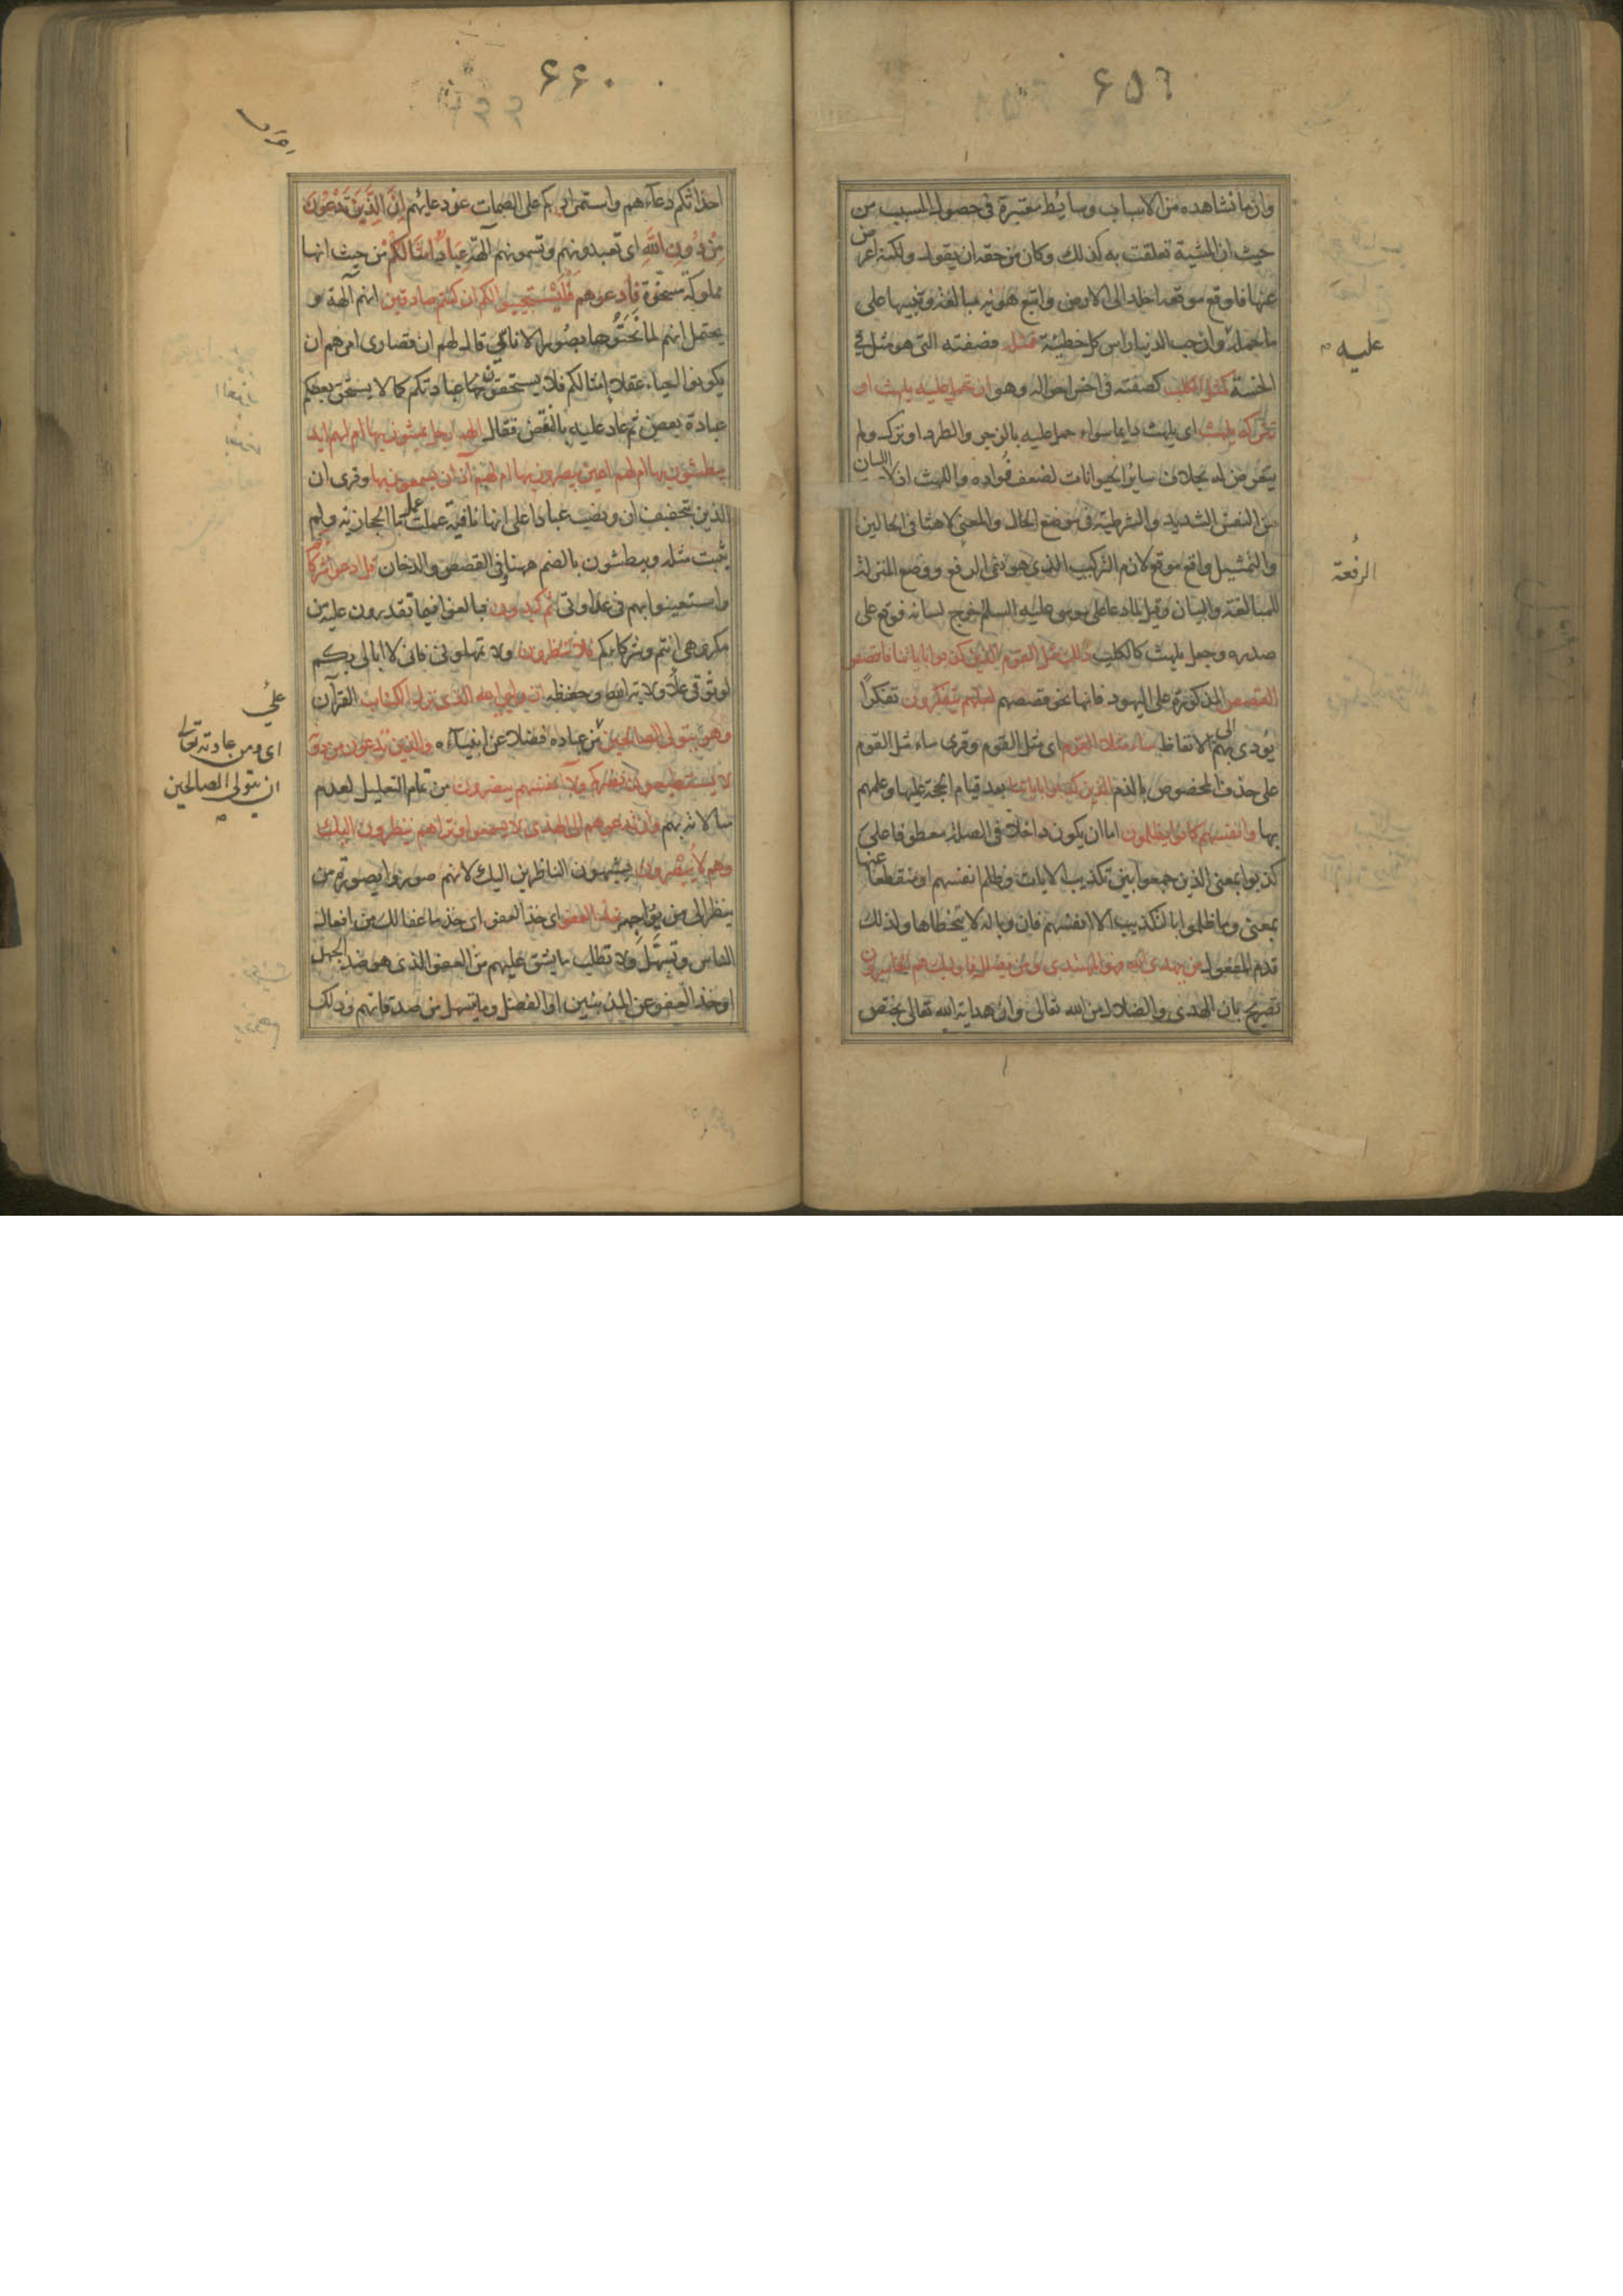 ٦٥٩
وان ما نشاهده من الاسباب وسايط معتبرة فى حصول المسبب من
حيث ان المشية تعلقت به كذلك وكان من حقه ان يقول ولكنه اعرض
عنها فاوقع موقعه اخلد الى الارض واتبع هويه مبالغة وتنبيها على
ما حمله وان حب الدنيا راس كل خطيئة فمثله فصفته التى هو مثل فى
عليه
الخسة كمثل الكلب كصفته فى اخس احواله وهو ان تحمل عليه يلهث او
تتركه يلهث اى يلهث دايما سواء حمل عليه بالزجر والطرد او ترك ولم
يتعرض له بخلاف ساير الحيوانات لضعف فؤاده واللهث ادلاع اللسان
من النفس الشديد والشرطية فى موضع الحال والمعنى لاهثا فى الحالين
والتمثيل واقع موقع لازم التركيب الذى هو نفى الرفع ووضع المنزلة
الرفعة
للمبالغة والبيان وقيل لما دعا على موسى عليه السلم خرج لسانه فوقع على
صدره وجعل يلهث كالكلب ذلك مثل القوم الذين كذبوا باياتنا فاقصص
القصص المذكورة على اليهود فانها نحو قصصهم لعلهم يتفكرون تفكرا
يؤدى بهم الى الاتعاظ ساء مثلا القوم اى مثل القوم وقرى ساء مثل القوم
على حذف المخصوص بالذم الذين كذبوا باياتنا بعد قيام الحجة عليها وعلمهم
بها وانفسهم كانوا يظلمون اما ان يكون داخلا فى الصلة معطوفا على
كذبوا بمعنى الذين جمعوا بين تكذيب الايات وظلم انفسهم او منقطعا عنها
بمعنى وما ظلموا بالتكذيب الا انفسهم فان وباله لا يتخطاها ولذلك
قدم المفعول من يهدى الله فهو المهتدى ومن يضلل فاوليك هم الخاسرون
تصريح بان الهدى والضلال من الله تعالى وان هداية الله تعالى يختص
٦٦٠
احداثكم دعاءهم واستمراركم على الصمات عن دعايهم ان الذين تدعون
من دون الله اى تعبدونهم وتسمونهم آلهة عباد امثالكم من حيث انها
مملوكة مسخرة فادعوهم فليستجيبوا لكم ان كنتم صادقين انهم آلهة و
يحتمل انهم لما نحتوها بصور الاناسى قال لهم ان قصارى امرهم ان
يكونوا احياء عقلاء امثالكم فلا يستحقون عبادتكم كما لا يستحق بعضكم
عبادة بعض ثم عاد عليه بالنقض فقال الهم ارجل يمشون بها ام لهم ايد
يبطشون بها ام لهم اعين يبصرون بها ام لهم آذان يسمعون بها وقرى ان
الذين بتخفيف ان ونصب عبادا على انها نافية عملت عمل ما الحجازية ولم
يثبت مثله ويبطشون بالضم ههنا وفى القصص والدخان قل ادعوا شركاكم
واستعينوا بهم فى عداوتى ثم كيدون فبالغوا فيما تقدرون عليه من
مكروهى انتم وشركايكم فلا تنظرون ولا تمهلونى فانى لا ابالى بكم
لوثوقى على ولاية الله وحفظه ان وليى الله الذى نزل الكتاب القرآن
على
وهو يتولى الصالحين من عباده فضلا عن انبيائه والذين تدعون من دونه
اى ومن عادته تعالى
ان يتولى الصالحين
لا يستطيعون نصركم ولا انفسهم ينصرون من تمام التعليل لعدم
مبالاته بهم وان تدعوهم الى الهدى لا يسمعوا وتراهم ينظرون اليك
وهم لا يبصرون يشبهون الناظرين اليك لانهم صوروا بصورة من
ينظر الى من يواجهه خذ العفو اى خذ ما عفا لك من افعال
الناس وتسهل ولا تطلب ما يشق عليهم من العفو الذى هو ضد الجهل
او خذ العفو عن المذنبين او الفضل وما يتسهل من صدقاتهم وذلك